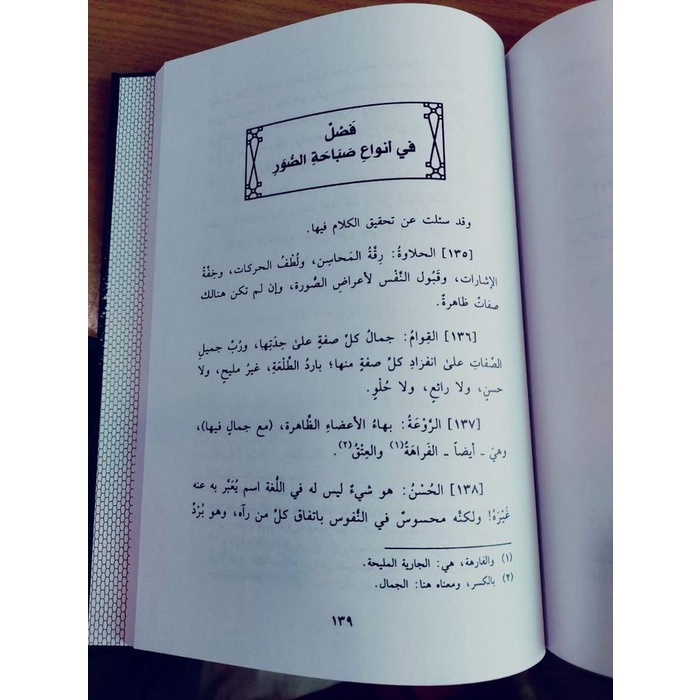 فَصْلٌ
في أنواعِ صَبَاحَةِ الصُّوَرِ
وقد سئلت عن تحقيق الكلام فيها.
[١٣٥] الحلاوةُ: رِقَّةُ المَحاسِن، ولُطْفُ الحركات، وخِفَّةُ
الإشارات، وقَبُول النَّفْس لأعراضِ الصُّورة، وإن لم تكن هنالك
صفاتٌ ظاهرةٌ.
[١٣٦] القِوامُ: جمالُ كلِّ صفةٍ علىٰ حِدَتِها، ورُبَّ جميلِ
الصِّفاتِ علىٰ انفرادِ كلِّ صفةٍ منها؛ باردُ الطَّلْعَةِ، غيرُ مليحٍ، ولا
حسنٍ، ولا رائعٍ، ولا حُلْوٍ.
[١٣٧] الرَّوْعَةُ: بهاءُ الأعضاءِ الظَّاهرة، (مع جمالٍ فيها)،
وهيَ ـ أيضاً ـ الفَراهَةُ(١) والعِتْقُ(٢).
[١٣٨] الحُسْنُ: هو شيءٌ ليس له في اللُّغة اسم يُعَبَّر به عنه
غَيْرَهُ! ولكنَّه محسوسٌ في النُّفوس باتفاق كلِّ من رآه، وهو بُرْدٌ
(١) والفارهة، هي: الجارية المليحة.
(٢) بالكسر، ومعناه هنا: الجمال.
١٣٩